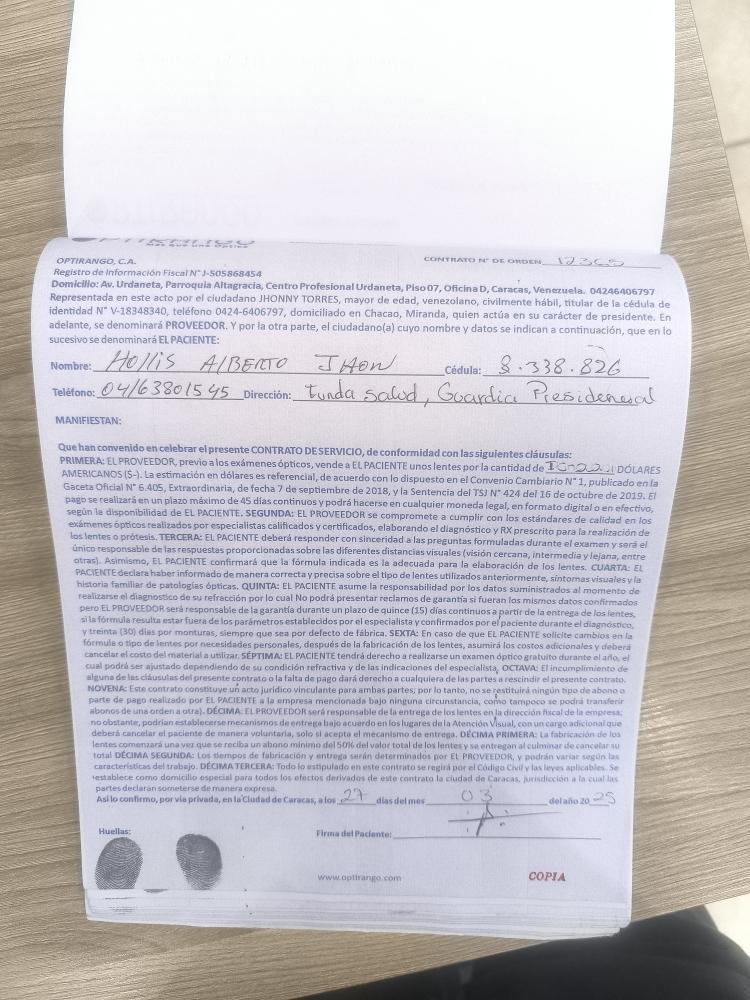 OPTIRANGO
Más que una Óptica
OPTIRANGO, C.A.
CONTRATO N° DE ORDEN 12365
Registro de Información Fiscal N° J-505868454
Domicilio: Av. Urdaneta, Parroquia Altagracia, Centro Profesional Urdaneta, Piso 07, Oficina D, Caracas, Venezuela. 04246406797
Representada en este acto por el ciudadano JHONNY TORRES, mayor de edad, venezolano, civilmente hábil, titular de la cédula de
identidad N° V-18348340, teléfono 0424-6406797, domiciliado en Chacao, Miranda, quien actúa en su carácter de presidente. En
adelante, se denominará PROVEEDOR. Y por la otra parte, el ciudadano(a) cuyo nombre y datos se indican a continuación, que en lo
sucesivo se denominará EL PACIENTE:
Nombre: Hollis ALBERTO JHON Cédula: 8.338.826
Teléfono: 04163801545 Dirección: funda salud, Guardia Presidensal
MANIFIESTAN:
Que han convenido en celebrar el presente CONTRATO DE SERVICIO, de conformidad con las siguientes cláusulas:
PRIMERA: EL PROVEEDOR, previo a los exámenes ópticos, vende a EL PACIENTE unos lentes por la cantidad de DÓLARES
AMERICANOS ($-). La estimación en dólares es referencial, de acuerdo con lo dispuesto en el Convenio Cambiario N° 1, publicado en la
Gaceta Oficial N° 6.405, Extraordinaria, de fecha 7 de septiembre de 2018, y la Sentencia del TSJ N° 424 del 16 de octubre de 2019. El
pago se realizará en un plazo máximo de 45 días continuos y podrá hacerse en cualquier moneda legal, en formato digital o en efectivo,
según la disponibilidad de EL PACIENTE. SEGUNDA: EL PROVEEDOR se compromete a cumplir con los estándares de calidad en los
exámenes ópticos realizados por especialistas calificados y certificados, elaborando el diagnóstico y RX prescrito para la realización de
los lentes o prótesis. TERCERA: EL PACIENTE deberá responder con sinceridad a las preguntas formuladas durante el examen y será el
único responsable de las respuestas proporcionadas sobre las diferentes distancias visuales (visión cercana, intermedia y lejana, entre
otras). Asimismo, EL PACIENTE confirmará que la fórmula indicada es la adecuada para la elaboración de los lentes. CUARTA: EL
PACIENTE declara haber informado de manera correcta y precisa sobre el tipo de lentes utilizados anteriormente, síntomas visuales y la
historia familiar de patologías ópticas. QUINTA: EL PACIENTE asume la responsabilidad por los datos suministrados al momento de
realizarse el diagnostico de su refracción por lo cual No podrá presentar reclamos de garantía si fueran los mismos datos confirmados
pero EL PROVEEDOR será responsable de la garantía durante un plazo de quince (15) días continuos a partir de la entrega de los lentes,
si la fórmula resulta estar fuera de los parámetros establecidos por el especialista y confirmados por el paciente durante el diagnóstico,
y treinta (30) días por monturas, siempre que sea por defecto de fábrica. SEXTA: En caso de que EL PACIENTE solicite cambios en la
fórmula o tipo de lentes por necesidades personales, después de la fabricación de los lentes, asumirá los costos adicionales y deberá
cancelar el costo del material a utilizar. SÉPTIMA: EL PACIENTE tendrá derecho a realizarse un examen óptico gratuito durante el año, el
cual podrá ser ajustado dependiendo de su condición refractiva y de las indicaciones del especialista, OCTAVA: El incumplimiento de
alguna de las cláusulas del presente contrato o la falta de pago dará derecho a cualquiera de las partes a rescindir el presente contrato.
NOVENA: Este contrato constituye un acto jurídico vinculante para ambas partes; por lo tanto, no se restituirá ningún tipo de abono a
parte de pago realizado por EL PACIENTE a la empresa mencionada bajo ninguna circunstancia, como tampoco se podrá transferir
abonos de una orden a otra). DÉCIMA: EL PROVEEDOR será responsable de la entrega de los lentes en la dirección fiscal de la empresa;
no obstante, podrían establecerse mecanismos de entrega bajo acuerdo en los lugares de la Atención Visual, con un cargo adicional que
deberá cancelar el paciente de manera voluntaria, solo si acepta el mecanismo de entrega. DÉCIMA PRIMERA: La fabricación de los
lentes comenzará una vez que se reciba un abono mínimo del 50% del valor total de los lentes y se entregan al culminar de cancelar su
total DÉCIMA SEGUNDA: Los tiempos de fabricación y entrega serán determinados por EL PROVEEDOR, y podrán variar según las
características del trabajo. DÉCIMA TERCERA: Todo lo estipulado en este contrato se regirá por el Código Civil y las leyes aplicables. Se
establece como domicilio especial para todos los efectos derivados de este contrato la ciudad de Caracas, jurisdicción a la cual las
partes declaran someterse de manera expresa.
Así lo confirmo, por vía privada, en la Ciudad de Caracas, a los 27 días del mes 03 del año 2025
Huellas:
Firma del Paciente:
www.optirango.com
COPIA